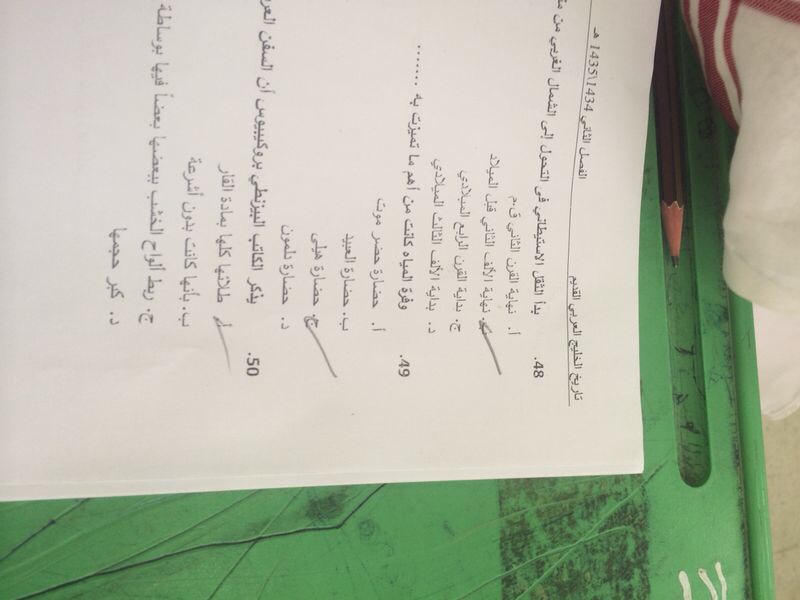 تاريخ الخليج العربي القديم الفصل الثاني 1434\1435 هـ
48. بدأ الثقل الاستيطاني في التحول إلى الشمال الغربي من
أ. نهاية القرن الثاني ق.م
ب. نهاية الألف الثاني قبل الميلاد
ج. بداية القرن الرابع الميلادي
د. بداية الألف الثالث الميلادي
49. وفرة المياه كانت من أهم ما تميزت به .......
أ. حضارة حضر موت
ب. حضارة العبيد
ج. حضارة هيلي
د. حضارة دلمون
50. يذكر الكاتب البيزنطي بروكيبيوس أن السفن
أ. طلائها كلها بمادة القار
ب. بأنها كانت بدون أشرعة
ج. ربط ألواح الخشب ببعضها بعضاً فيها بوساطة
د. كبر حجمها